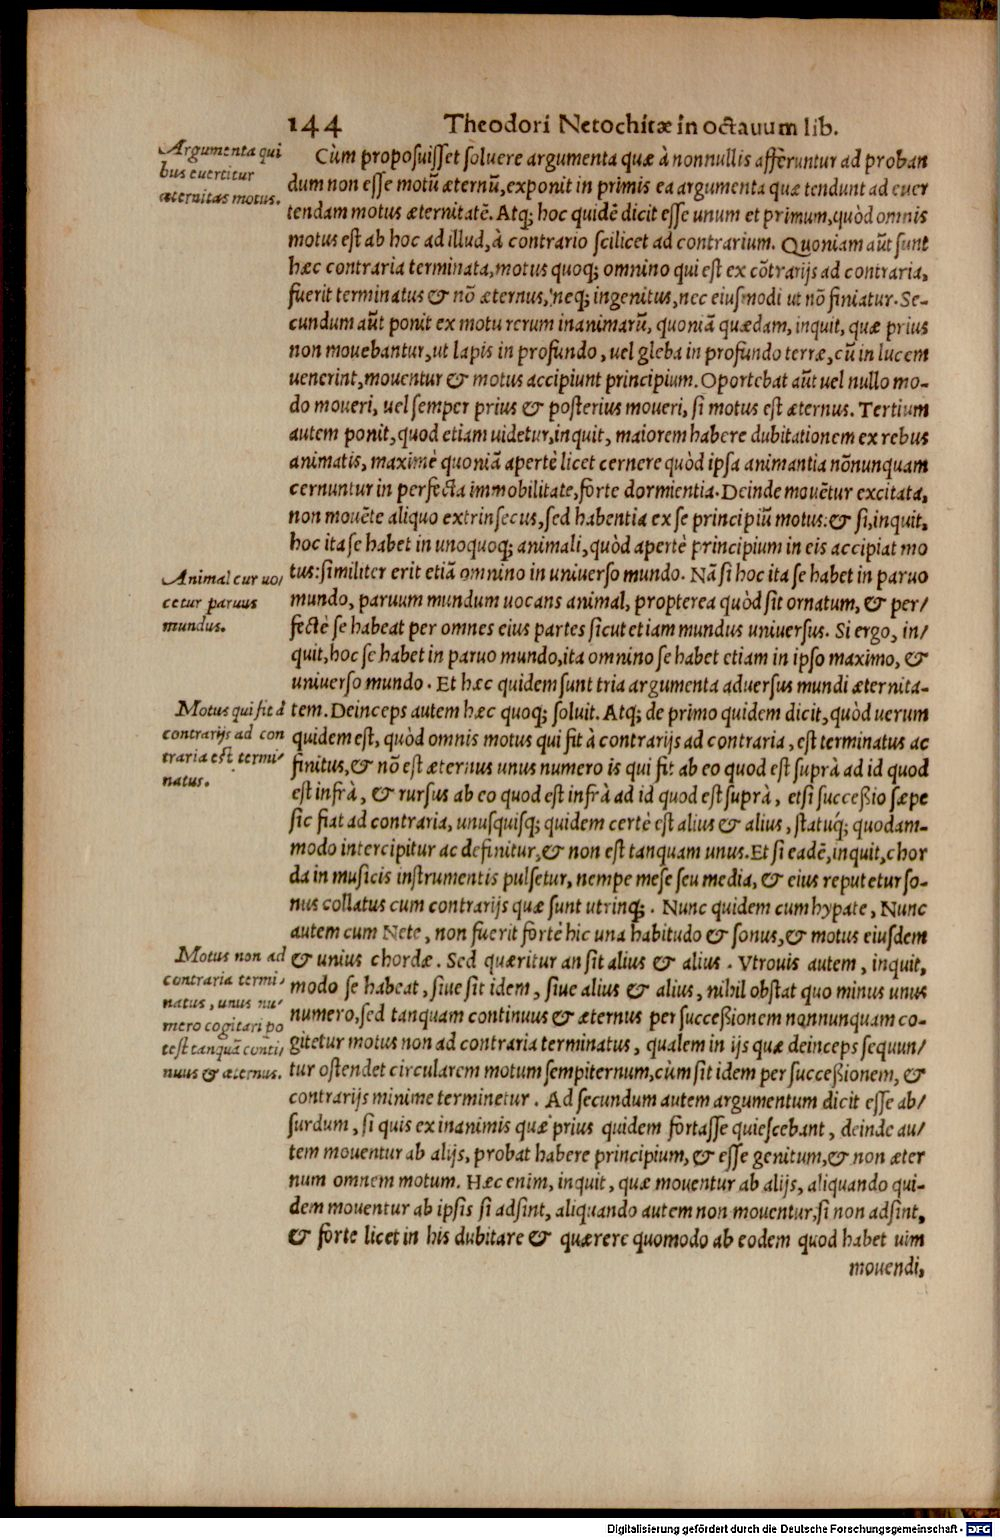 144 Theodori Netochitæ in octauum lib.
Argumenta qui
bus euertitur
æternitas motus.
Cùm proposuisset soluere argumenta quæ à nonnullis afferuntur ad proban
dum non esse motũ æternũ, exponit in primis ea argumenta quæ tendunt ad euer
tendam motus æternitatẽ. Atq; hoc quidẽ dicit esse unum et primum, quòd omnis
motus est ab hoc ad illud, à contrario scilicet ad contrarium. Quoniam aũt sunt
hæc contraria terminata, motus quoq; omnino qui est ex cõtrarijs ad contraria,
fuerit terminatus & nõ æternus, neq; ingenitus, nec eiusmodi ut nõ finiatur. Se-
cundum aũt ponit ex motu rerum inanimarũ, quoniã quædam, inquit, quæ prius
non mouebantur, ut lapis in profundo, uel gleba in profundo terræ, cũ in lucem
uenerint, mouentur & motus accipiunt principium. Oportebat aũt uel nullo mo-
do moueri, uel semper prius & posterius moueri, si motus est æternus. Tertium
autem ponit, quod etiam uidetur, inquit, maiorem habere dubitationem ex rebus
animatis, maximè quoniã apertè licet cernere quòd ipsa animantia nõnunquam
cernuntur in perfecta immobilitate, forte dormientia. Deinde mouẽtur excitata,
non mouẽte aliquo extrinsecus, sed habentia ex se principiũ motus: & si, inquit,
hoc ita se habet in unoquoq; animali, quòd apertè principium in eis accipiat mo
tus: similiter erit etiã omnino in uniuerso mundo. Nã si hoc ita se habet in paruo
Animal cur uo/
cetur paruus
mundus.
mundo, paruum mundum uocans animal, propterea quòd sit ornatum, & per/
fectè se habeat per omnes eius partes sicut etiam mundus uniuersus. Si ergo, in/
quit, hoc se habet in paruo mundo, ita omnino se habet etiam in ipso maximo, &
uniuerso mundo. Et hæc quidem sunt tria argumenta aduersus mundi æternita-
Motus qui fit à
contrarijs ad con
traria est termi/
natus.
tem. Deinceps autem hæc quoq; soluit. Atq; de primo quidem dicit, quòd uerum
quidem est, quòd omnis motus qui fit à contrarijs ad contraria, est terminatus ac
finitus, & nõ est æternus unus numero is qui fit ab eo quod est suprà ad id quod
est infrà, & rursus ab eo quod est infrà ad id quod est suprà, etsi successio sæpe
sic fiat ad contraria, unusquisq; quidem certè est alius & alius, statuq́; quodam-
modo intercipitur ac definitur, & non est tanquam unus. Et si eadẽ, inquit, chor
da in musicis instrumentis pulsetur, nempe mese seu media, & eius reputetur so-
nus collatus cum contrarijs quæ sunt utrinq;. Nunc quidem cum hypate, Nunc
autem cum Nete, non fuerit fortè hic una habitudo & sonus, & motus eiusdem
Motus non ad
contraria termi/
natus, unus nu/
mero cogitari po
test tanquã conti/
nuus & æternus.
& unius chordæ. Sed quæritur an sit alius & alius. Vtrouis autem, inquit,
modo se habeat, siue sit idem, siue alius & alius, nihil obstat quo minus unus
numero, sed tanquam continuus & æternus per successionem nonnunquam co-
gitetur motus non ad contraria terminatus, qualem in ijs quæ deinceps sequun/
tur ostendet circularem motum sempiternum, cùm sit idem per successionem, &
contrarijs minime terminetur. Ad secundum autem argumentum dicit esse ab/
surdum, si quis ex inanimis quæ prius quidem fortasse quiescebant, deinde au/
tem mouentur ab alijs, probat habere principium, & esse genitum, & non æter
num omnem motum. Hæc enim, inquit, quæ mouentur ab alijs, aliquando qui-
dem mouentur ab ipsis si adsint, aliquando autem non mouentur, si non adsint,
& forte licet in his dubitare & quærere quomodo ab eodem quod habet uim
mouendi,
Digitalisierung gefördert durch die Deutsche Forschungsgemeinschaft - DFG